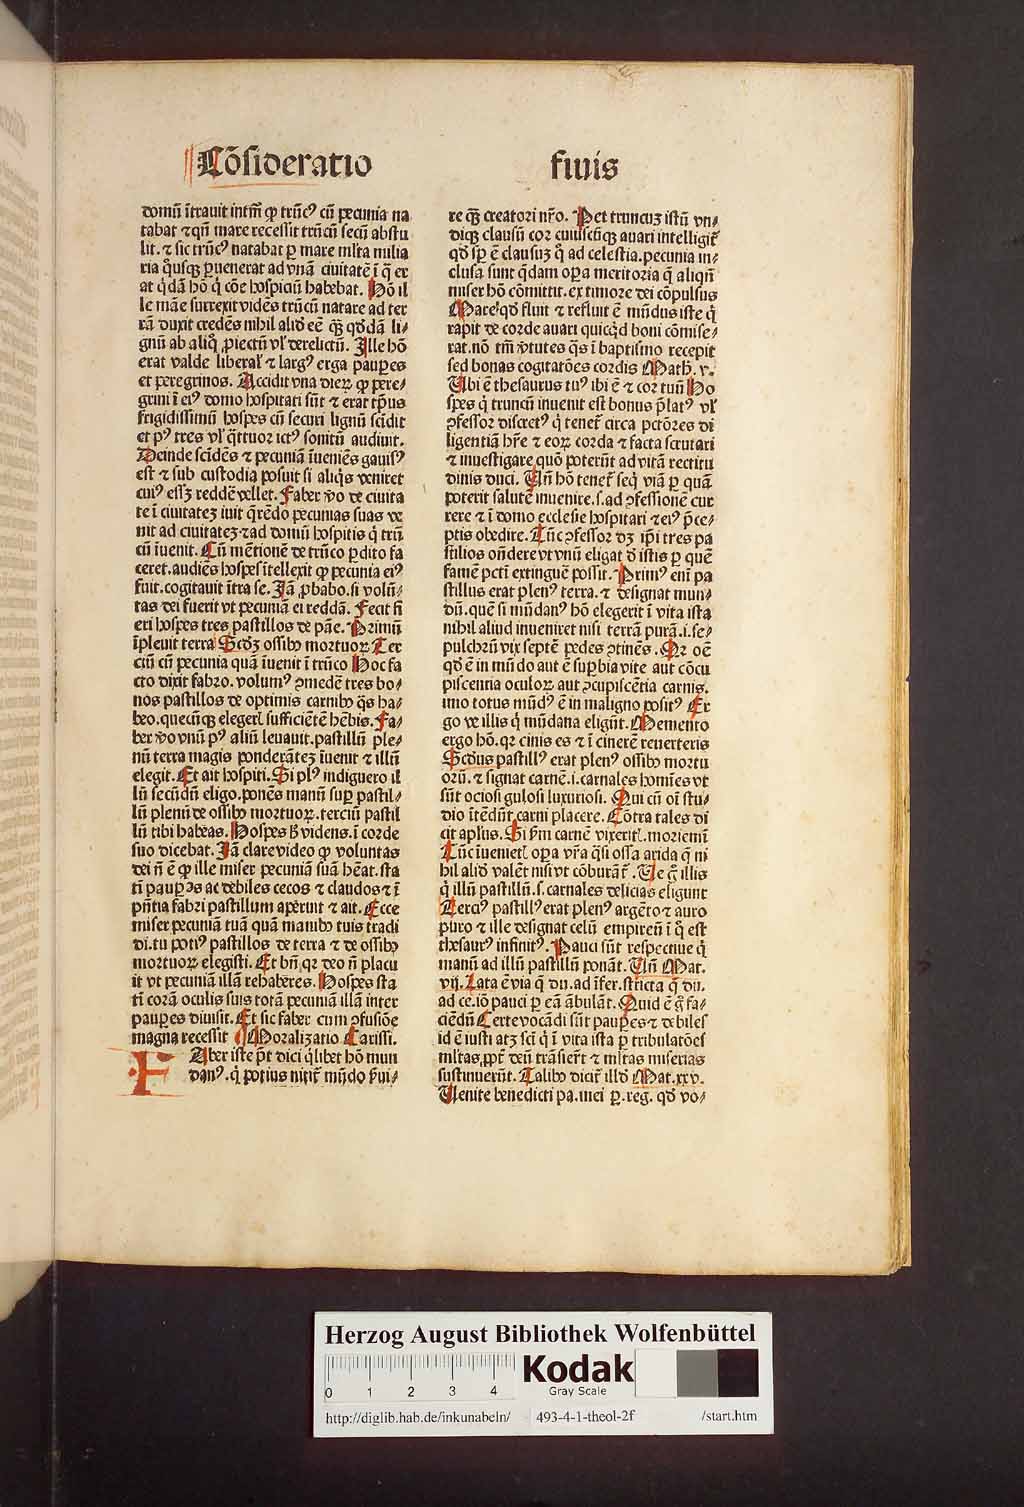 Cōsideratio finis
domū ītrauit intm̄ ꝙ trūcꝰ cū pecunia na
tabat ⁊ qn̄ mare recessit trūcū secū abstu
lit. ⁊ sic trūcꝰ natabat ꝑ mare ml̄ta milia
ria qͦusqꝫ ꝑuenerat ad vnā ciuitatē ī q̄ er
at q̇dā hō q̇ cōe hospiciū habebat. Hō il
le māe surrexit vidēs trūcū natare ad ter
rā duxit credēs nihil aliđ eē qꝫ̄ qđdā li⸗
gnū ab aliq̇ ꝓiectū vl̓ derelictū. Ille hō
erat valde liberal̓ ⁊ largꝰ erga pauꝑes
et peregrinos. Accidit vna dieꝝ ꝙ pere⸗
grini ī eiꝰ domo hospitati sūt ⁊ erat tp̄us
frigidissimū hospes cū securi lignū scīdit
et pꝰ tres vl̓ q̄ttuor ictꝰ sonitū audiuit.
Deinde scīdēs ⁊ pecuniā īueniēs gauisꝰ
est ⁊ sub custodia posuit si aliq̇s veniret
cuiꝰ essꝫ reddē vellet. Faber v̄o de ciuita
te ī ciuitatez iuit q̄rēdo pecunias suas ve
nit ad ciuitatez ⁊ ad domū hospitis q̇ trū
cū īuenit. Cū mētionē de trūco ꝑdito fa
ceret. audiēs hospes ītellexit ꝙ pecunia eiꝰ
fuit. cogitauit ītra se. Jā ꝓbabo. si volū⸗
tas dei fuerit vt pecuniā ei reddā. Fecit fi
eri hospes tres pastillos de pāe. Primū
īpleuit terra Scđꝫ ossibꝰ mortuoꝝ Ter
ciū cū pecunia quā īuenit ī trūco Hoc fa
cto dixit fabro. volumꝰ ꝯmedē tres bo⸗
nos pastillos de optimis carnibꝰ q̄s ha⸗
beo. quēcūqꝫ elegerl̓ sufficiētē hēbis. Fa⸗
ber v̄o vnū pꝰ aliū leuauit. pastillū ple⸗
nū terra magis ponderātez īuenit ⁊ illū
elegit. Et ait hospiti. Si plꝰ indiguero il
lū secūdū eligo. ponēs manū suꝑ pastil⸗
lū plenū de ossibꝰ mortuoꝝ. terciū pastil
lū tibi habēas. Hospes h̄ videns. ī corde
suo dicebat. Jā clare video ꝙ voluntas
dei n̄ ē ꝙ ille miser pecuniā suā hēat. sta
tī pauꝑes ac debiles cecos ⁊ claudos ⁊ ī
pn̄tia fabri pastillum aꝑerunt ⁊ ait. Ecce
miser pecuniā tuā quā manibꝰ tuis tradi
di. tu potiꝰ pastillos de terra ⁊ de ossibꝰ
mortuoꝝ elegisti. Et bn̄. qꝛ deo n̄ placu
it vt pecuniā illā rehaberes. Hospes sta
tī corā oculis suis totā pecuniā illā inter
pauꝑes diuisit. Et sic faber cum ꝯfusiōe
magna recessit Moralizatio Carissi.
FAber iste pt̄ dici q̇libet hō mun
danꝰ. q̇ potius nitit̄ mūdo ẜui⸗
re qꝫ̄ creatori nr̄o. Per truncuz istū vn⸗
diqꝫ clausū cor cuiuscūqꝫ auari intelligit̄
qđ sꝑ ē clausuz qͦ ad celestia. pecunia in⸗
clusa sunt q̄dam oꝑa meritoria q̄ aliqn̄
miser hō cōmittit. ex timore dei cōpulsus
Mare qđ fluit ⁊ refluit ē mūdus iste q̇
rapit de corde auari quicq̇d boni cōmise⸗
rat. nō tm̄ v̓tutes q̄s ī baptismo recepit
sed bonas cogitatōes cordis Math. v.
Vbi ē thesaurus tuꝰ ibi ē ⁊ cor tuū Ho
spes q̇ truncū inuenit est bonus p̄latꝰ vl̓
ꝯfessor discretꝰ q̇ tenet̄ circa pctōres di
ligentiā hr̄e ⁊ eoꝝ corda ⁊ facta scrutari
⁊ inuestigare quō poterūt ad vitā rectitu
dinis duci. Vn̄ hō tenet̄ seq̇ viā ꝑ quā
poterit salutē inuenire. s. ad ꝯfessionē cur
rere ⁊ ī domo ecclesie hospitari ⁊ eiꝰ p̄ce⸗
ptis obedire. Tūc ꝯfessor dꝫ ip̄i tres pa
stillos on̄dere vt vnū eligat đ istis ꝑ quē
famē pctī extinguē possit. Primꝰ eni pa
stillus erat plenꝰ terra. ⁊ designat mun⸗
dū. quē si mūdanꝰ hō elegerit ī vita ista
nihil aliud inueniret nisi terrā purā. i. se⸗
pulchrū vix septē pedes ꝯtinēs. Qꝛ oē
qđ ē in mūdo aut ē suꝑbia vite aut cōcu
piscentia oculoꝝ aut ꝯcupiscētia carnis.
imo totus mūdꝰ ē in maligno positꝰ Er
go ve illis q̇ mūdana eligūt. Memento
ergo hō. qꝛ cinis es ⁊ ī cinerē reuerteris
Scđus pastillꝰ erat plenꝰ ossibꝰ mortu
orū. ⁊ signat carnē. i. carnales homīes vt
sūt ociosi gulosi luxuriosi. Qui cū oī stu⸗
dio ītēdūt carni placere. Cōtra tales di
cit apl̓us. Si ẜm carnē vixeritl̓. moriemī
Tūc īuenietl̓ oꝑa vr̄a q̄si ossa arida q̄ ni
hil aliđ valēt nisi vt cōburāt̄. Ve g̊ illis
q̇ illū pastillū. s. carnales delicias eligunt
Terciꝰ pastillꝰ erat plenꝰ argēto ⁊ auro
puro ⁊ ille designat celū empireū ī qͦ est
thesaurꝰ infinitꝰ. Pauci sūt respectiue q̇
manū ad illū pastillū ponāt. Vn̄ Mat.
vij. Lata ē via q̄ du. ad īfer. stricta q̄ du.
ad ce. iō pauci ꝑ eā ābulāt. Quid ē g̊ fa⸗
ciēdū Certe vocādi sūt pauꝑes ⁊ debiles
id ē iusti atꝫ scī q̇ ī vita ista ꝑ tribulatōes
ml̄tas, ꝓpt̄ deū trāsier̄t ⁊ ml̄tas miserias
sustinuerūt. Talibꝰ dicit̄ illđ Mat. xxv.
Venite benedicti pa. mei ꝑ. reg. qđ vo⸗
Herzog August Bibliothek Wolfenbüttel
0 1 2 3 4
Kodak
Gray Scale
http://diglib.hab.de/inkunabeln/ 493-4-1-theol-2f /start.htm